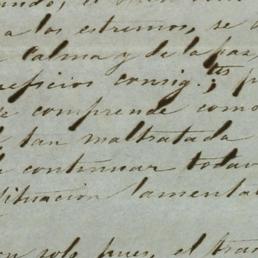 a los estremos, se
calma y de la paz,
eficios consig.tes p
e comprende como
tan maltratada
continuar todav
situacion lamenta
solo pues, el tra